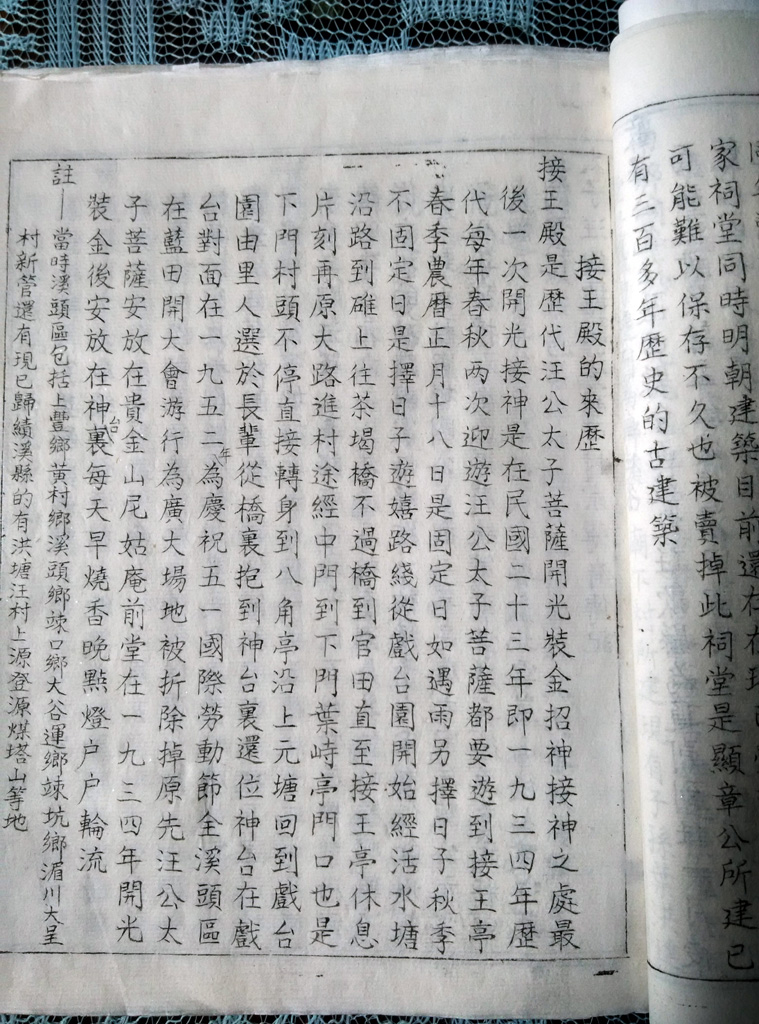 家祠堂同時明朝建築目前還在在
可能難以保存不久也被賣掉此祠堂是顯章公所建已
有三百多年歷史的古建築
接王殿的來歷
接王殿是歷代汪公太子菩薩開光裝金招神接神之處最
後一次開光接神是在民國二十三年即一九三四年歷
代每年春秋两次迎遊汪公太子菩薩都要遊到接王亭
春季農曆正月十八日是固定日如遇雨另擇日子秋季
不固定日是擇日子遊嬉路綫從戲台園開始經活水塘
沿路到碓上往茶堨橋不過橋到官田直至接王亭休息
片刻再原大路進村途經中門到下門葉峙亭門口也是
下門村頭不停直接轉身到八角亭沿上元塘回到戲台
園由里人選於長輩從橋裏抱到神台裏還位神台在戲
台對面在一九五二年為慶祝五一國際勞動節全溪頭區
在藍田開大會游行為廣大場地被折除掉原先汪公太
子菩薩安放在貴金山尼姑庵前堂在一九三四年開光
裝金後安放在神台裏每天早燒香晚點燈户户輪流
註—當時溪頭區包括上豐鄉黃村鄉溪頭鄉竦口鄉大谷運鄉竦坑鄉湄川大呈
村新管還有現已歸績溪縣的有洪塘汪村上源登源煤塔山等地